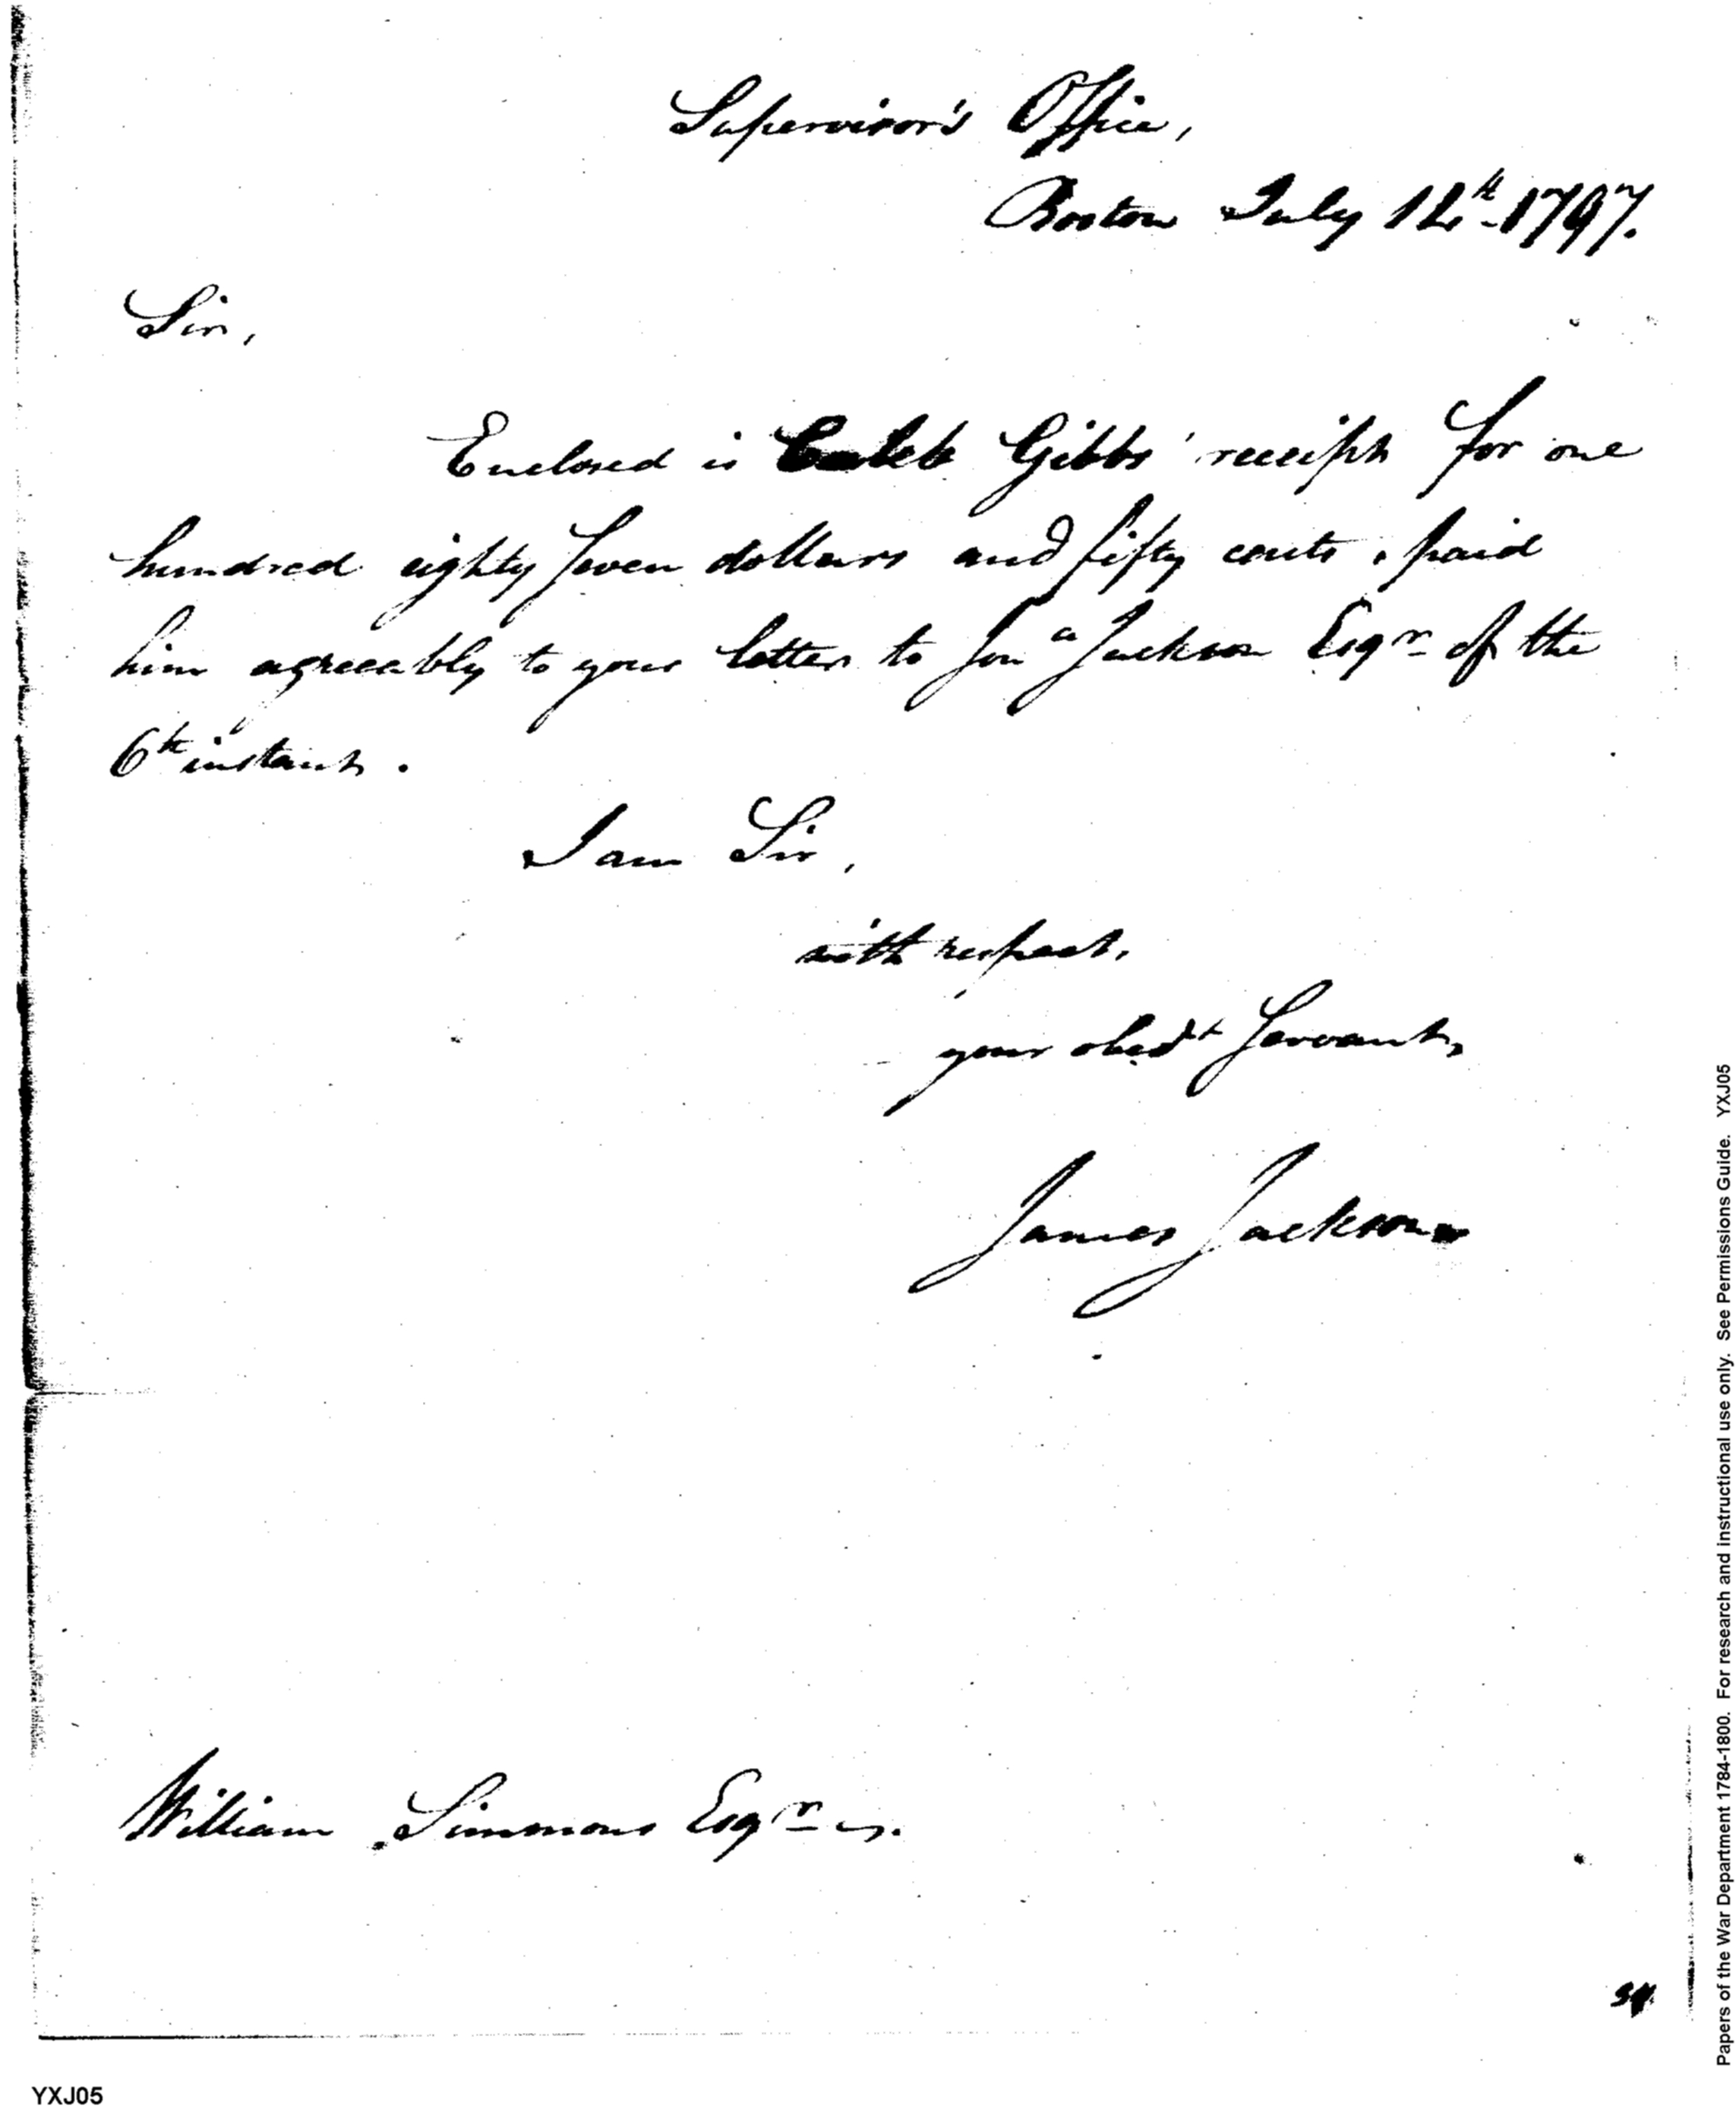 Supervisor's Office,
Boston July 12th 1797.
Sir,
Enclosed is Caleb Gibbs' receipt for one
hundred eighty seven dollars and fifty cents, paid
him agreeably to your letter to Jona Jackson Esqr of the
6th instant.
I am Sir,
with respect,
your obedt Servant,
James Jackson
William Simmons Esqr
YXJ05
Papers of the War Department 1784-1800. For research and instructional use only. See Permissions Guide. YXJ05